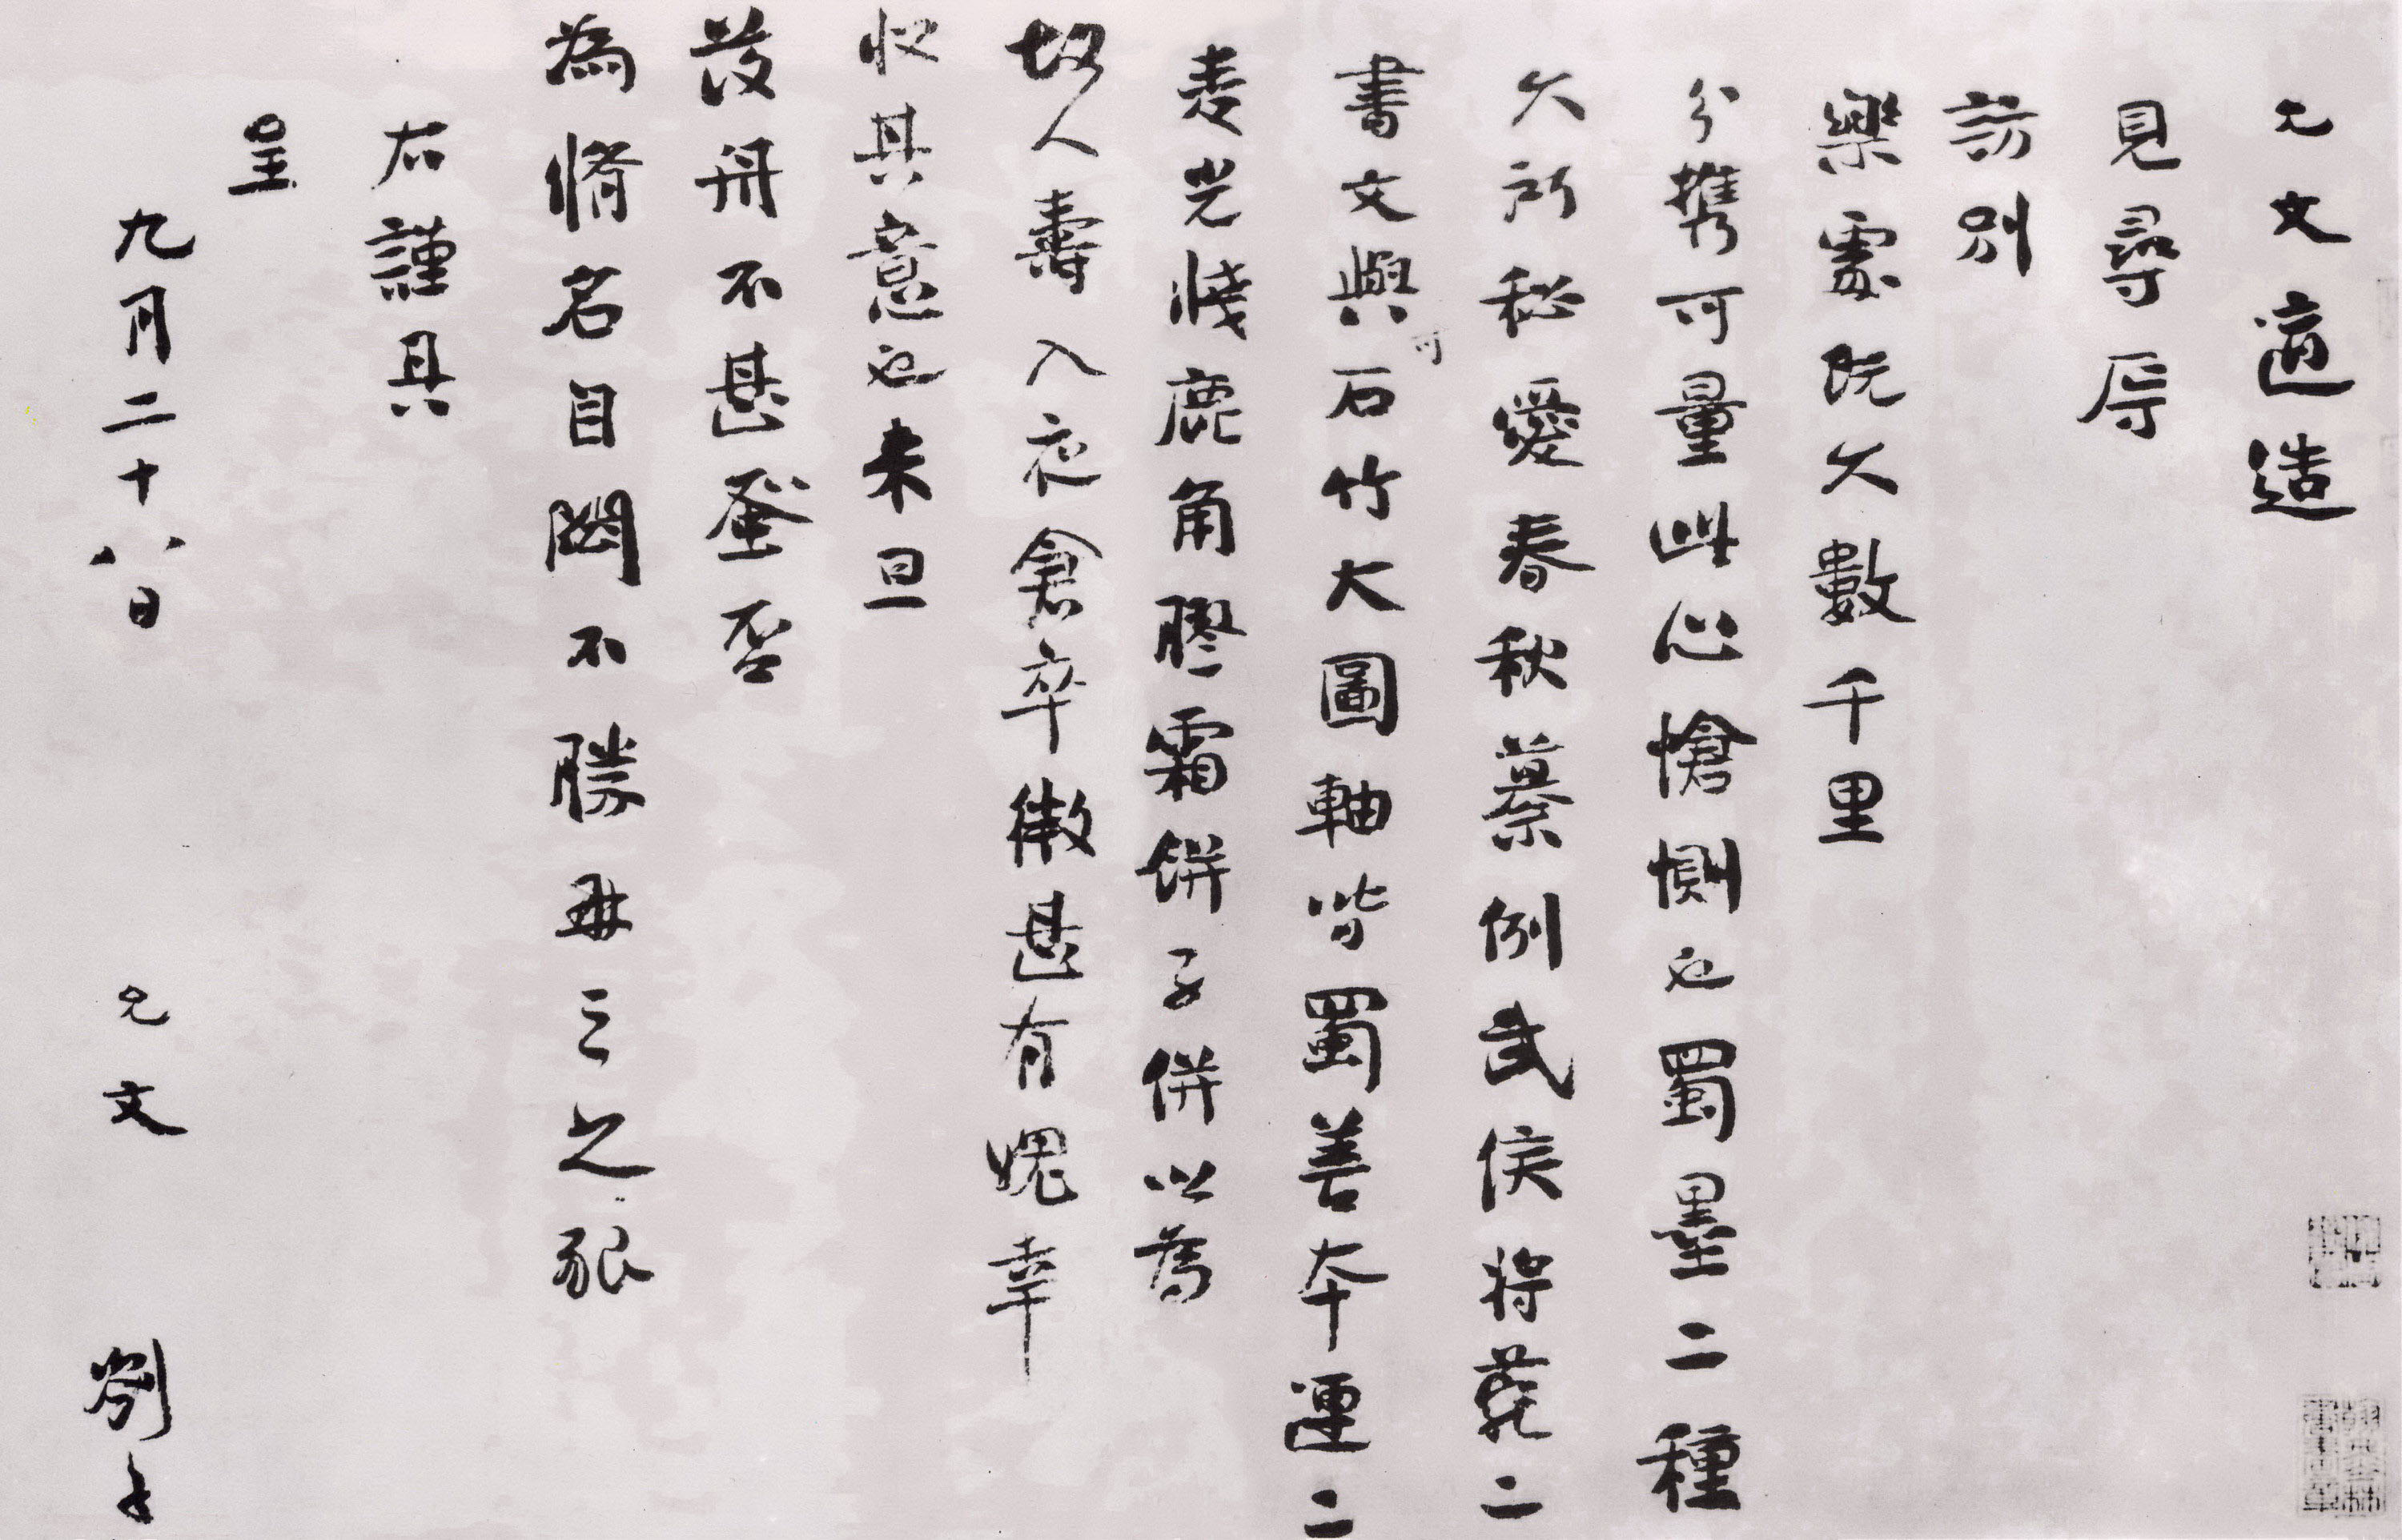 允文適造
見尋辱
訪別
樂處既久數千里
分携可量此心愴惻也蜀墨二種
久所秘愛春秋纂例武侯將苑二
書文與可石竹大圖軸皆蜀善本運二
麦光牋鹿角膠霜餅子併以為
故人壽入夜倉卒微甚有愧幸
收其意也来旦
發舟不甚蚤否
為脩名自閟不勝再三之懇
右謹具
呈
九月二十八日 允文 劄子